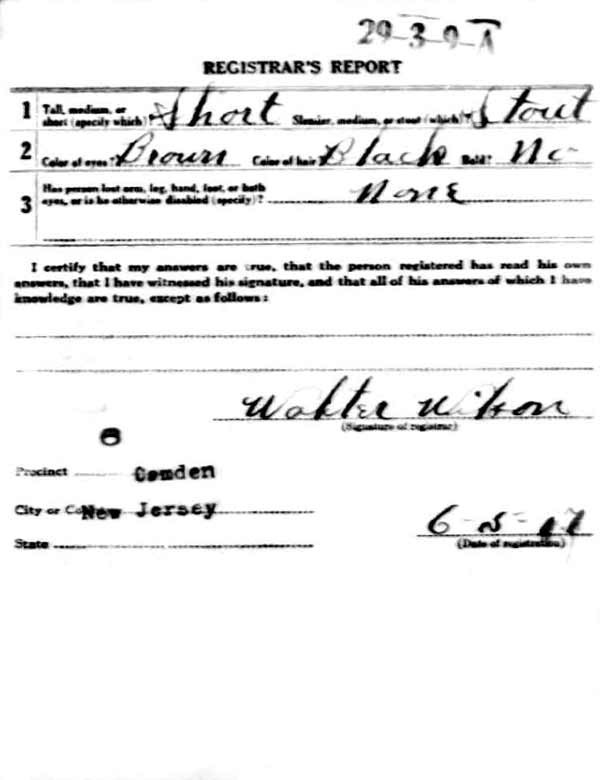 29-3-9-A
REGISTRAR'S REPORT
1 Tall, medium, or short (specify which)? Short Slender, medium, or stout (which)? Stout
2 Color of eyes? Brown Color of hair? Black Bald? No
3 Has person lost arm, leg, hand, foot, or both eyes, or is he otherwise disabled (specify)? None
I certify that my answers are true, that the person registered has read his own
answers, that I have witnessed his signature, and that all of his answers of which I have
knowledge are true, except as follows:
Walter Wilson
(Signature of registrar)
Precinct Camden
City or County New Jersey
State
6-5-17
(Date of registration)